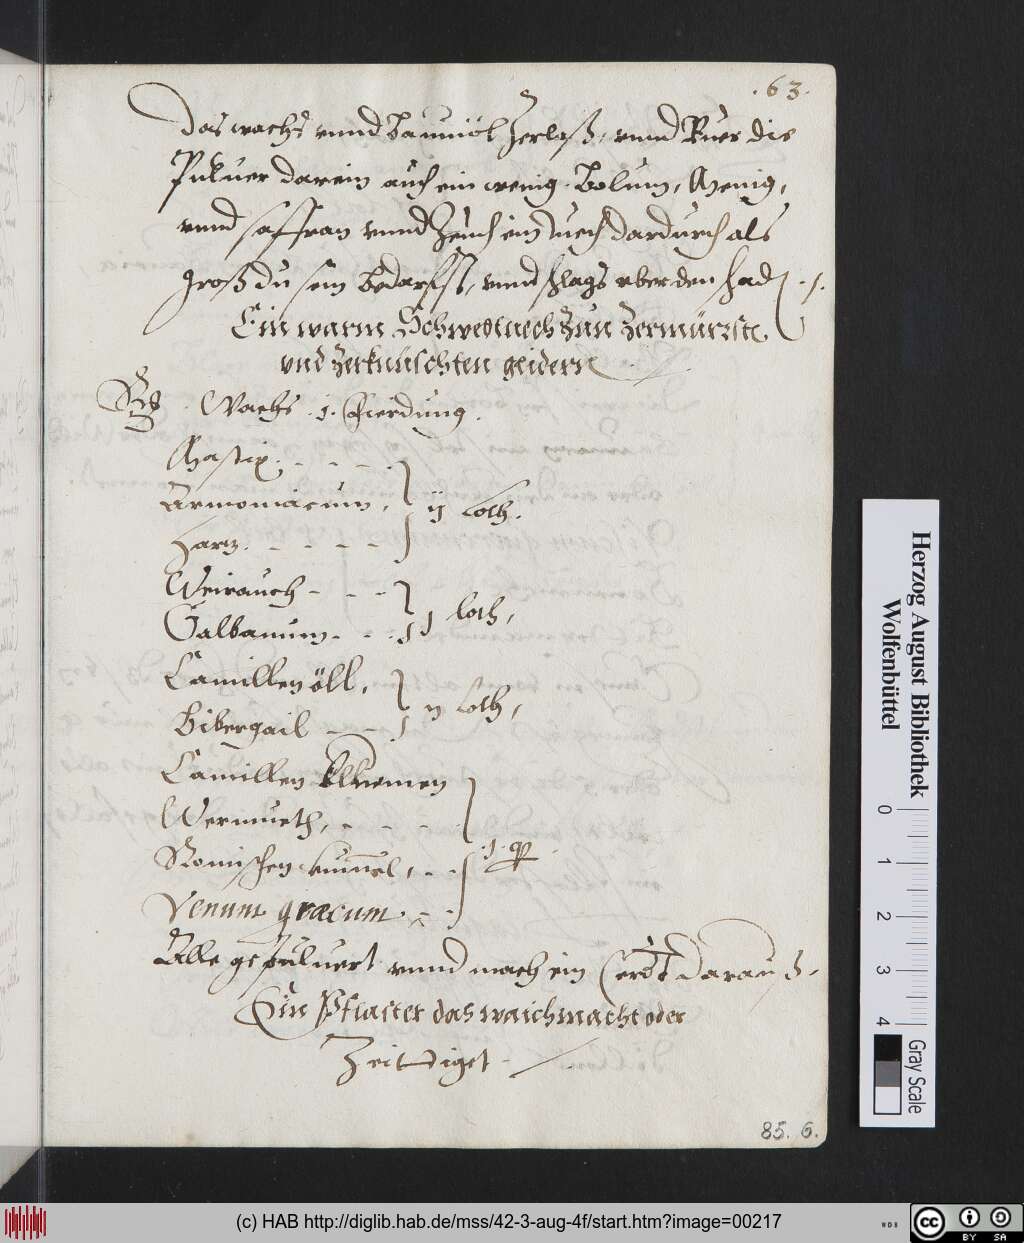 .63.
Das wachs vnnd Baumöl Zerlaß, vnnd Ruer die
Puluer darein auch ein wenig. Bolum, Menig,
vnnd saffran vnnd Zeuch ein Tuech dardurch als
groß du sein bedarfst, vnnd schlags vber den schad .
Ein warm Schwedtuech Zun Zermürzste
vnd Zerknüschten glidern
Wachs .1. Vierdung.
Mastix. - - - -
Armoniacum, ij Loth.
Hartz. - - - -
Weirauch - - -
Galbanum - - - j loth,
Camillen öll,
Bibergail - - - ij Loth,
Camillen Bluemen
Wermueth, - - - -
Romischen kümel, - - .1. q
Venum græcum - -
Alle gepuluert vnnd mach ein Cerot daraus.
Ein Pflaster das waich macht oder
Zeittiget -
85. 6.
Herzog August Bibliothek
Wolfenbüttel
0 1 2 3 4
Gray Scale
(c) HAB http://diglib.hab.de/mss/42-3-aug-4f/start.htm?image=00217
WDB
cc BY SA